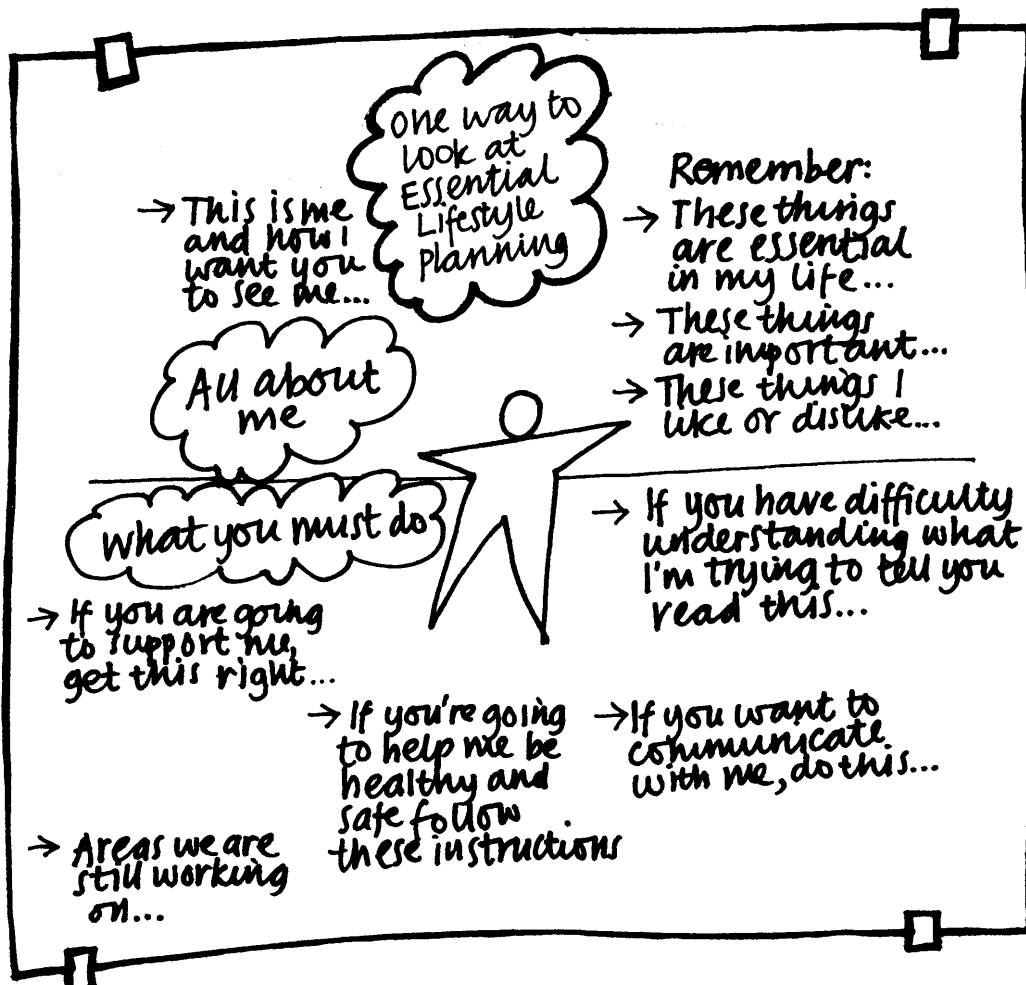 One way to
look at
Essential
Lifestyle
planning
→ This is me
and how I
want you
to see me...
Remember:
→ These things
are essential
in my life...
→ These things
are important...
→ These things I
like or dislike...
All about
me
What you must do
→ If you have difficulty
understanding what
I'm trying to tell you
read this...
→ If you are going
to support me,
get this right...
→ If you're going
to help me be
healthy and
safe follow
these instructions
→ If you want to
communicate
with me, do this...
→ Areas we are
still working
on...